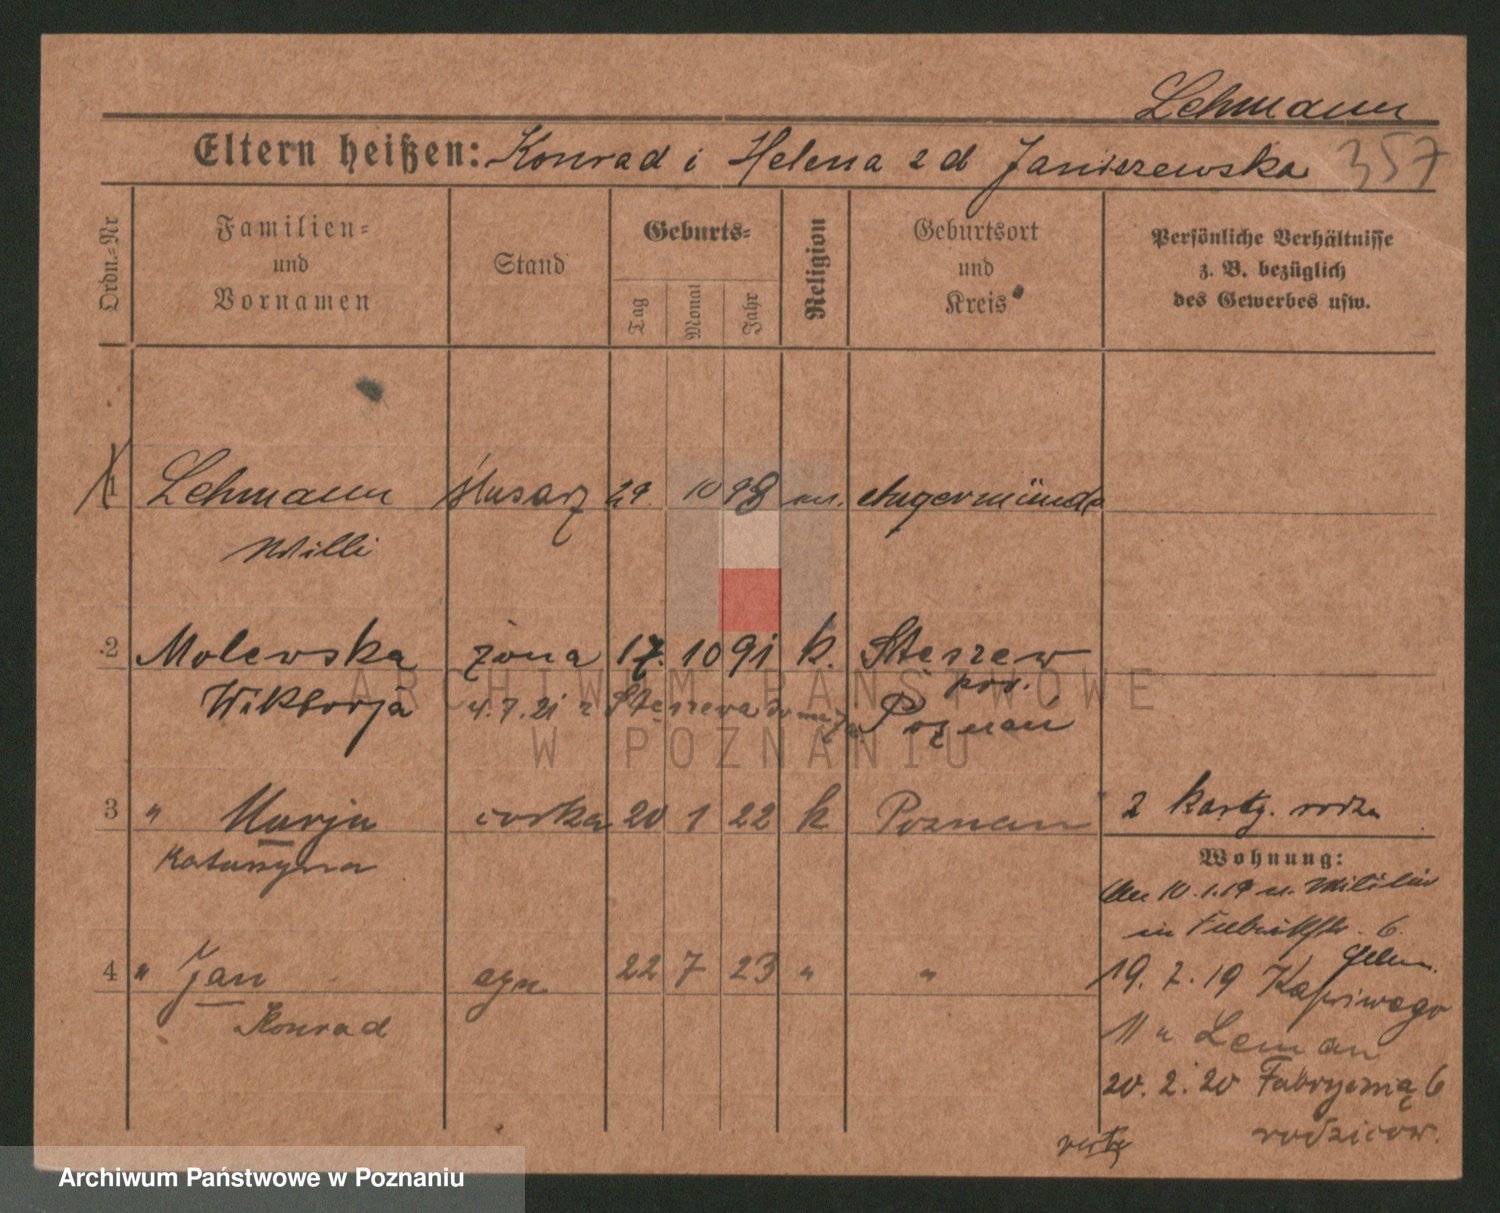 Lehmann
Eltern heißen: Konrad i Helena z d Janiszewska 357
Ordn.-Nr
Familien- und Vornamen
Stand
Geburts-
Tag
Monat
Jahr
Religion
Geburtsort und Kreis
Persönliche Verhältnisse
z. B. bezüglich
des Gewerbes usw.
1 Lehmann 29. 10 98 Angermünde
Willi
2 Molewska żona 17. 10 91 k. Stęszew
Wiktorja 4.7.21 z Stęszewa pow. Poznań
3 " Marja córka 20 1 22 k Poznań 2 rodz
Katarzyna
Wohnung:
10.1.19 Militär
in 6.
4 " Jan syn 22 7 23 " "
Konrad
19. 7. 19
11 u Leman
20. 2. 20 Fabryczna 6
rodziców.
ARCHIWUM PAŃSTWOWE
W POZNANIU
Archiwum Państwowe w Poznaniu